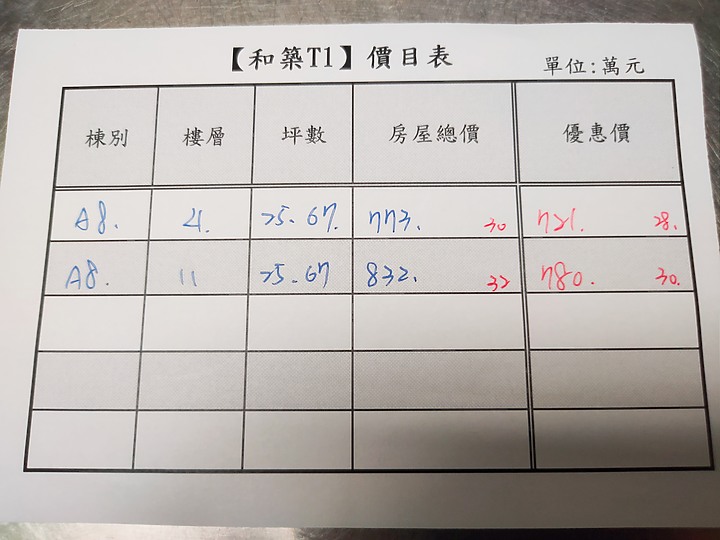 【和築T1】價目表
單位:萬元
棟別 樓層 坪數 房屋總價 優惠價
A8. 4. 25.67. 773. 30 721. 28.
A8. 11 25.67 832. 32 780. 30.